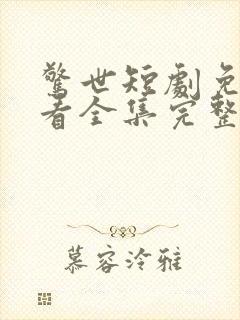 驚世短劇免
看全集完整
慕容泠雅